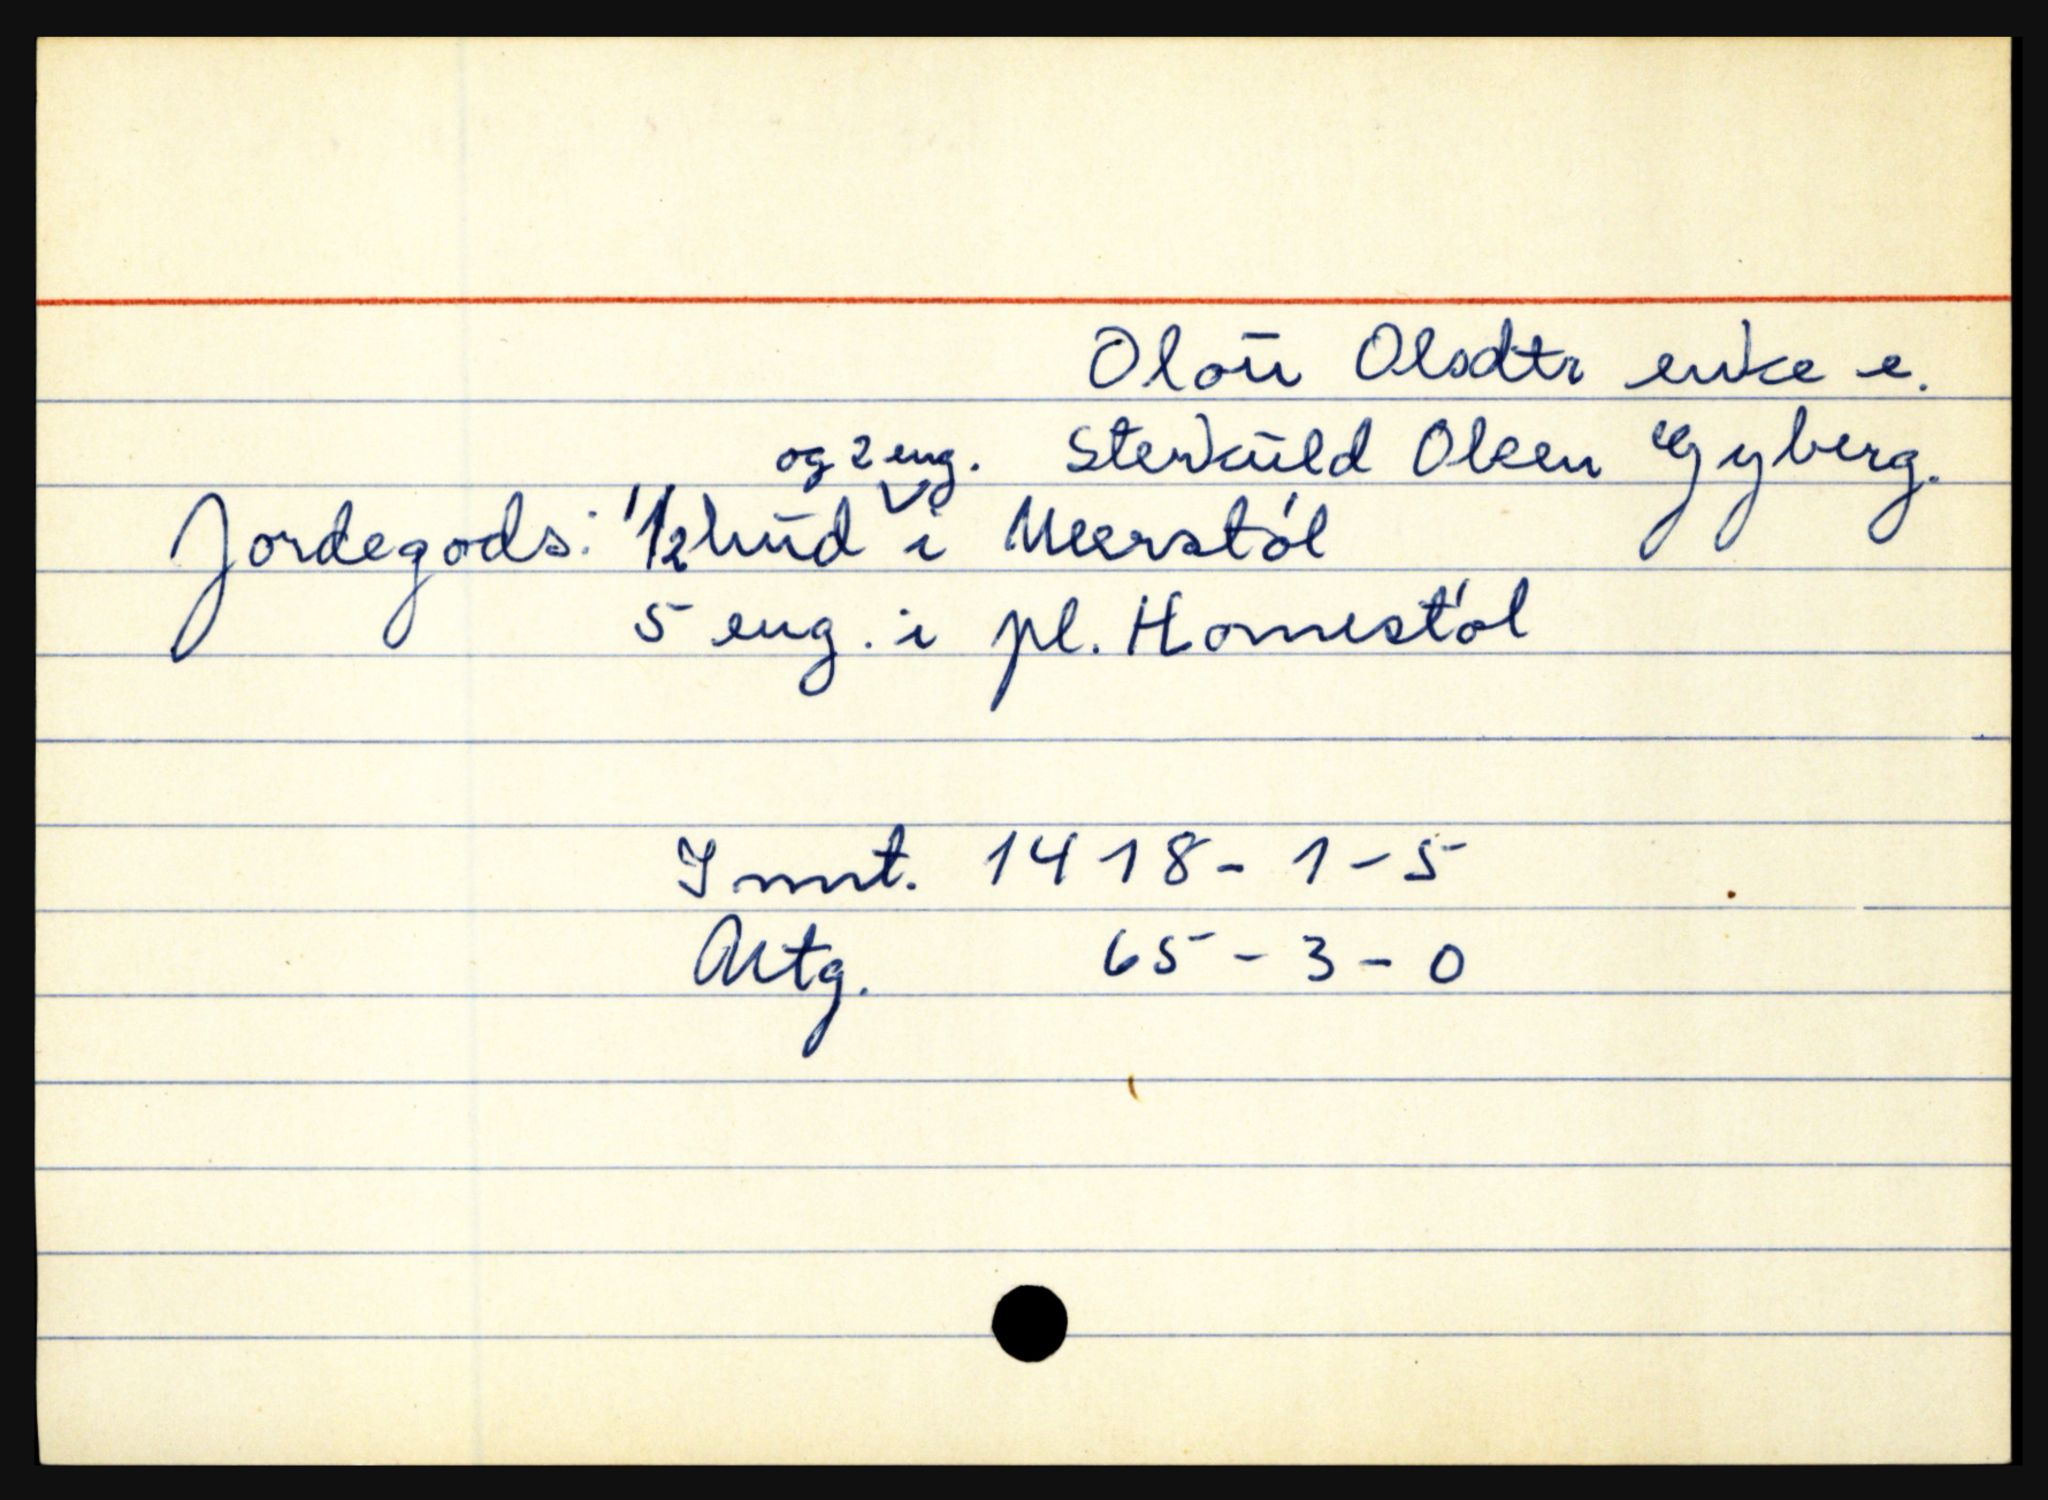 Oloū Olsdtr enke e.
Sterkūld Olsen Gyberg.
Jordegods: 1/2 hūd og 2 eng. i Meerstøl
5 eng. i pl. Homestøl
Innt. 1418 - 1 - 5
Utg. 65 - 3 - 0